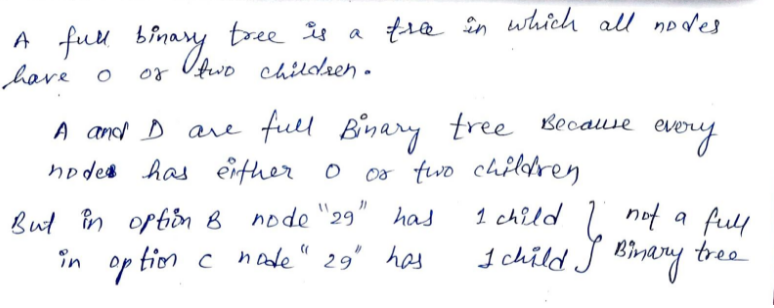 A full binary tree is a tree in which all nodes
have 0 or two children.
A and D are full Binary tree Because every
nodes has either 0 or two children
But in option B node "29" has 1 child } not a full
in option C node "29" has 1 child } Binary tree